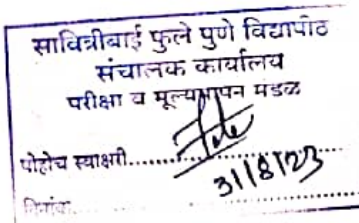 सावित्रीबाई फुले पुणे विद्यापीठ
संचालक कार्यालय
परीक्षा व मूल्यमापन मंडळ
पोहोच स्वाक्षरी..............
दिनांक..............31/8/23